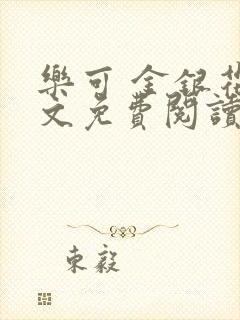 樂可 金銀花
文免費閱讀
東毅